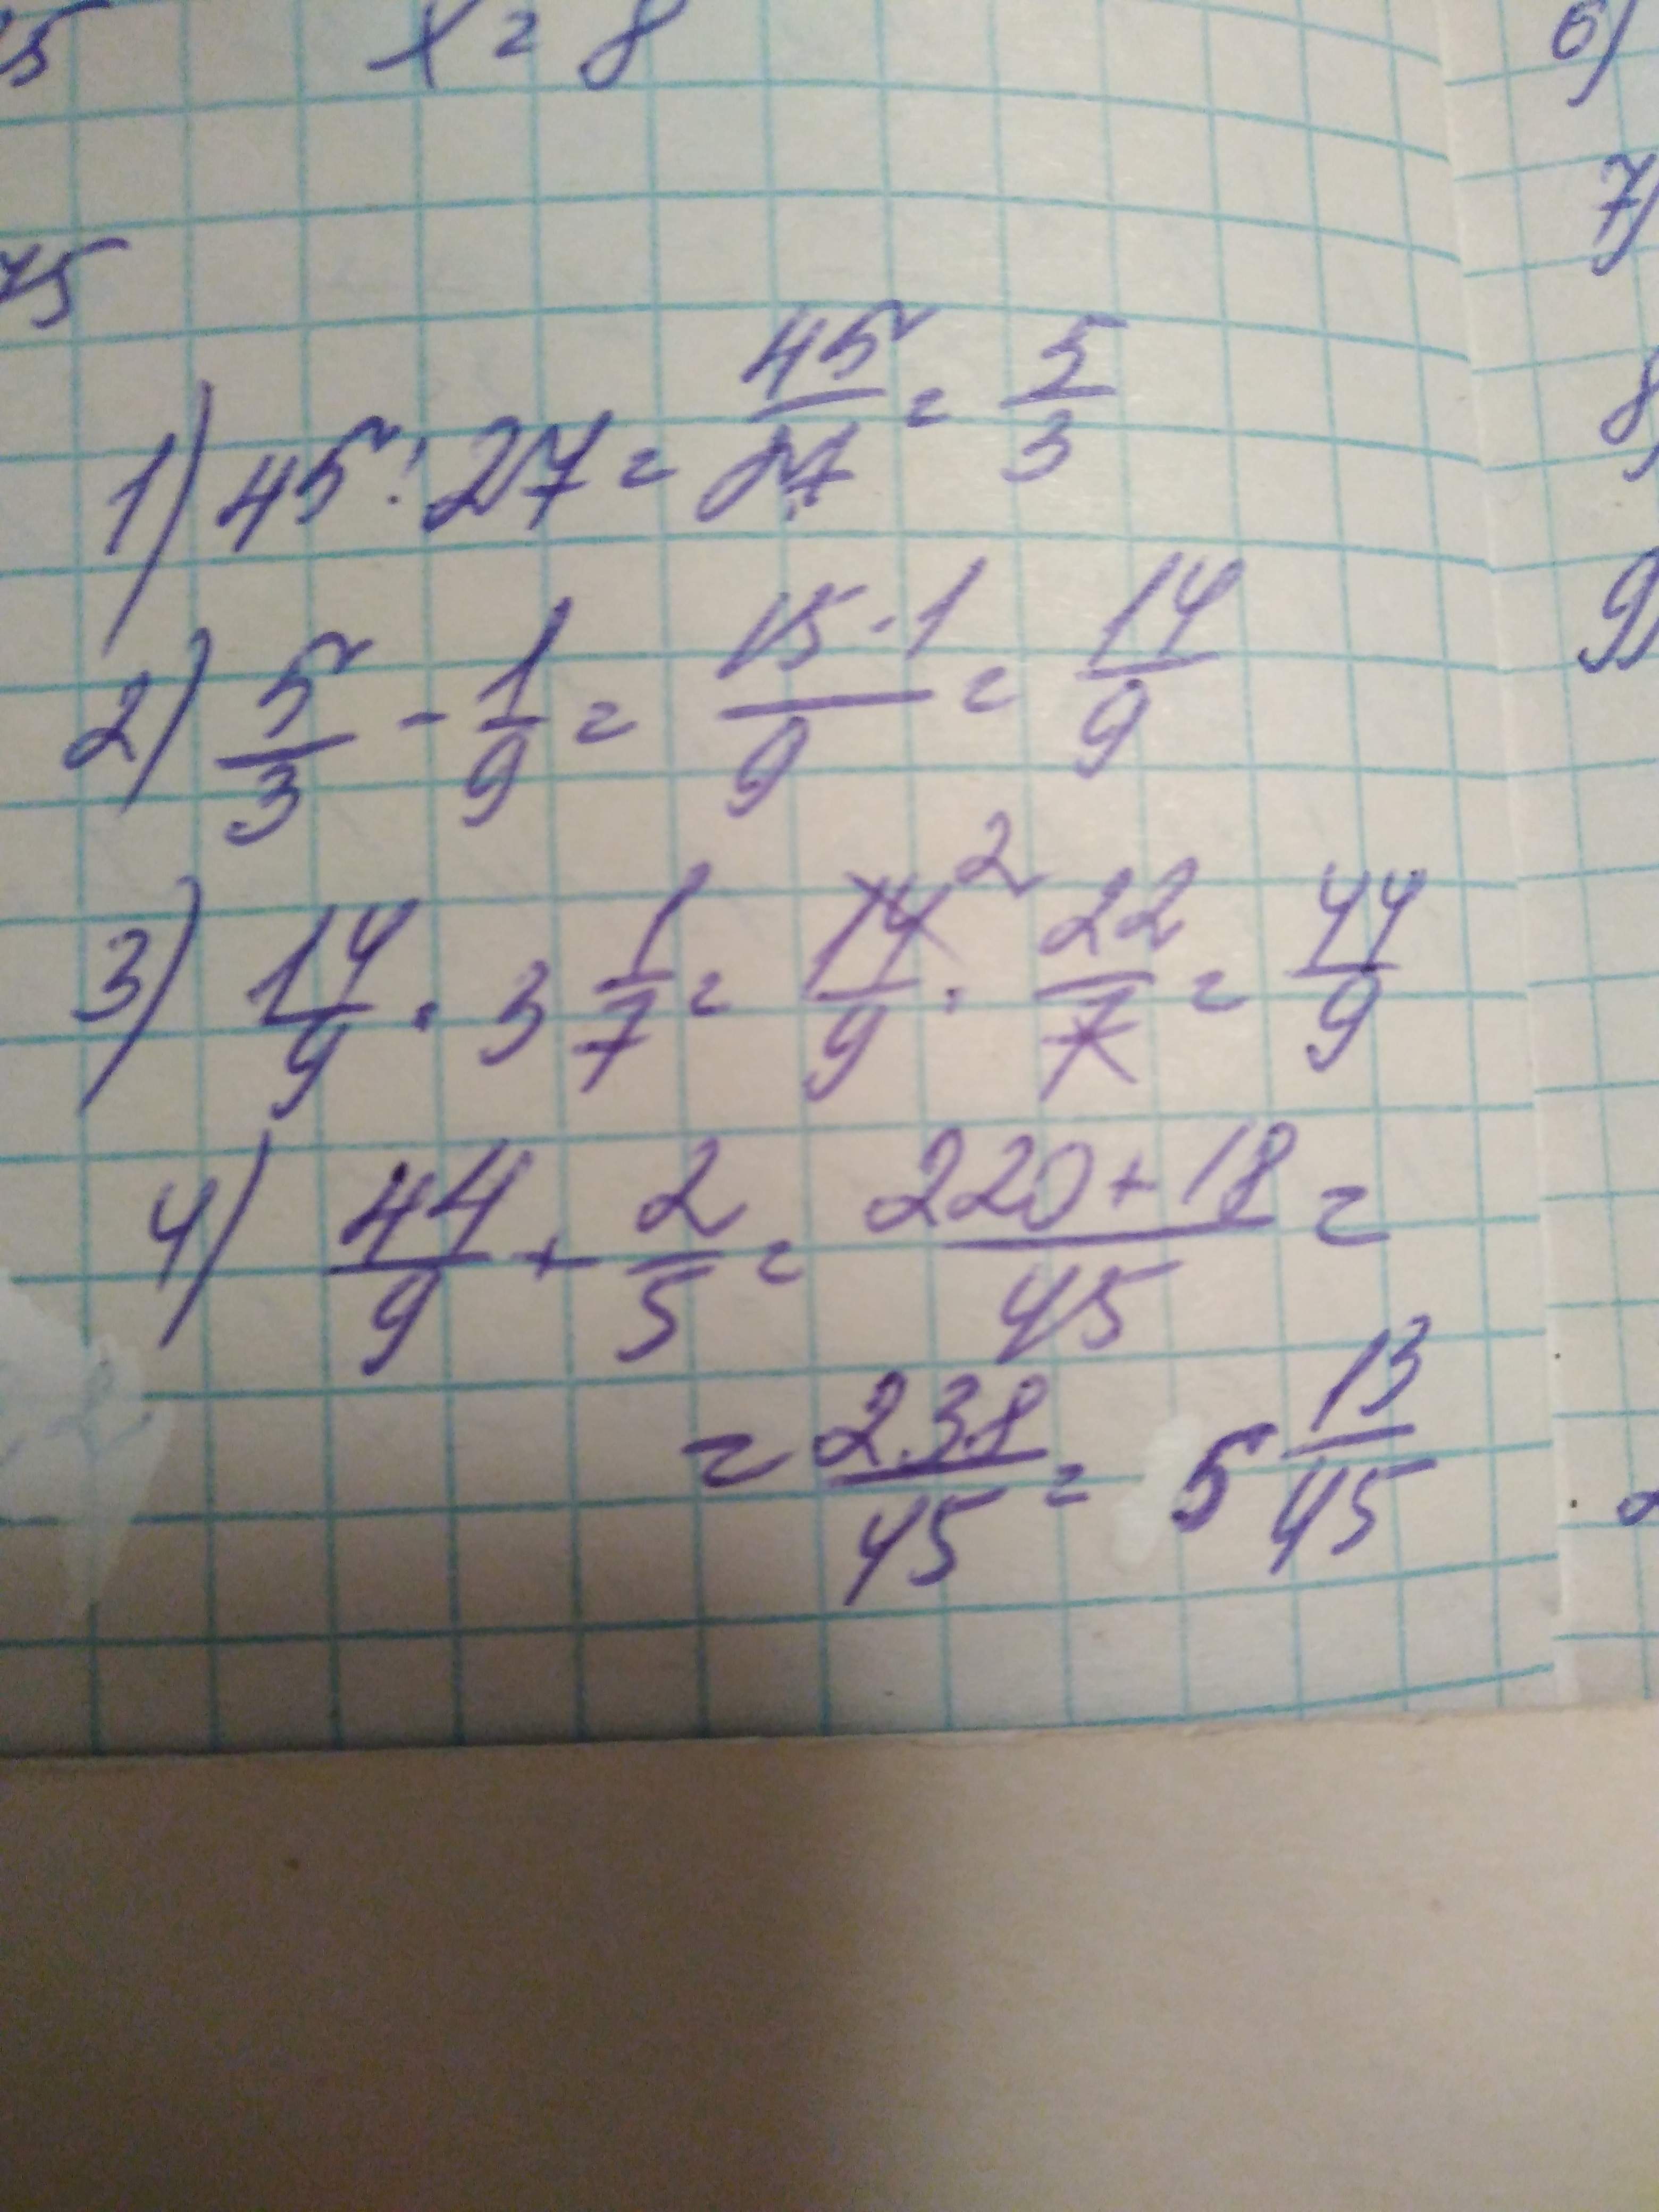 x = 8
6)
7)
75
1) 45 : 27 = 45/27 = 5/3
8)
2) 5/3 - 1/9 = 15 - 1/9 = 14/9
9)
3) 14/9 · 3 1/7 = 14/9 ² · 22/7 = 44/9
4) 44/9 + 2/5 = 220 + 18/45 =
= 238/45 = 5 13/45